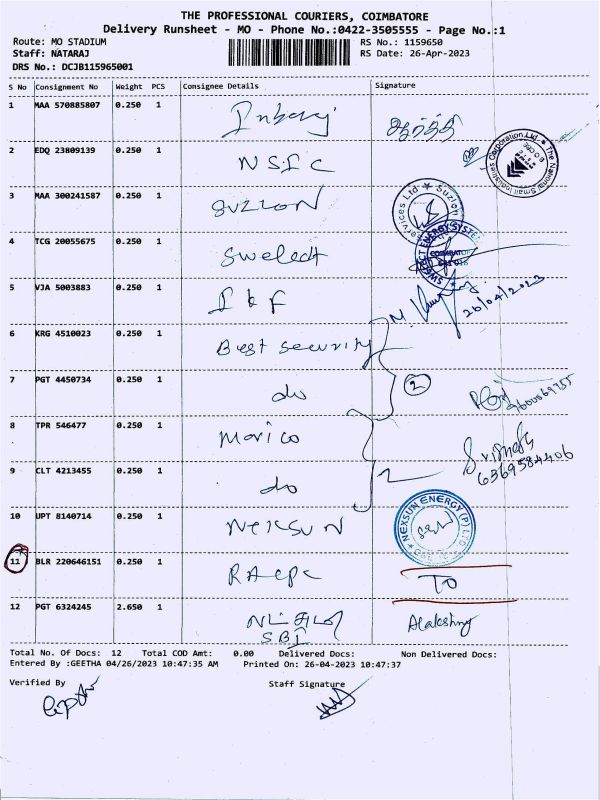 THE PROFESSIONAL COURIERS, COIMBATORE
Delivery Runsheet - MO - Phone No.:0422-3505555 - Page No.:1
Route: MO STADIUM RS No.: 1159650
Staff: NATARAJ RS Date: 26-Apr-2023
DRS No.: DCJB115965001
S No Consignment No Weight PCS Consignee Details Signature
1 MAA 570885807 0.250 1
2 EDQ 23809139 0.250 1 NSIC
The National Small Industries Corporation Ltd.
3 MAA 300241587 0.250 1 SUZLON
Services Ltd ★ Suzlon
4 TCG 20055675 0.250 1 Swelect
SWELECT ENERGY SYSTEMS
COIMBATORE
5 VJA 5003883 0.250 1
26/04/2023
6 KRG 4510023 0.250 1 Best security
7 PGT 4450734 0.250 1 do 2
8 TPR 546477 0.250 1 Marico
6369584406
9 CLT 4213455 0.250 1 do 2
10 UPT 8140714 0.250 1 Nexsun
NEXSUN ENERGY (P) LTD
11 BLR 220646151 0.250 1 RACPC TO
12 PGT 6324245 2.650 1
SBI
Total No. Of Docs: 12 Total COD Amt: 0.00 Delivered Docs: Non Delivered Docs:
Entered By :GEETHA 04/26/2023 10:47:35 AM Printed On: 26-04-2023 10:47:37
Verified By Staff Signature